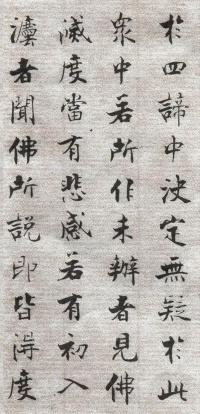 於四諦中決定無疑於此
眾中若所作未辦者見佛
滅度當有悲感若有初入
法者聞佛所說即皆得度